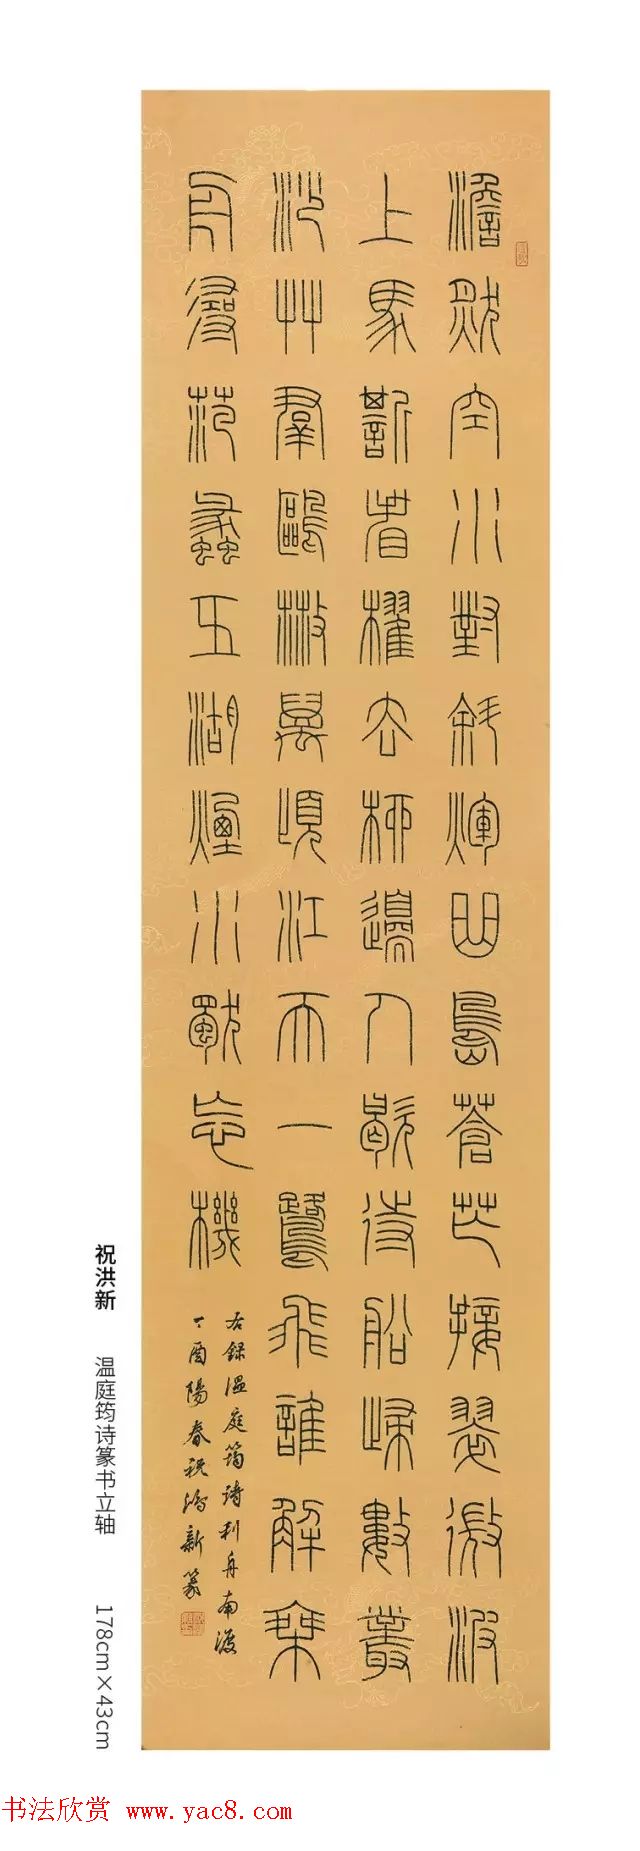 澹然空水對斜煇曲島蒼茫接翠微波
上馬嘶看櫂去柳邊人歇待船歸數叢
沙艸羣鷗散萬頃江天一鷺飛誰解乘
舟尋范蠡五湖煙水獨忘機
右錄溫庭筠詩利舟南渡
丁酉陽春祝洪新篆
祝洪新 温庭筠诗篆书立轴 178cm×43cm
书法欣赏 www.yac8.com